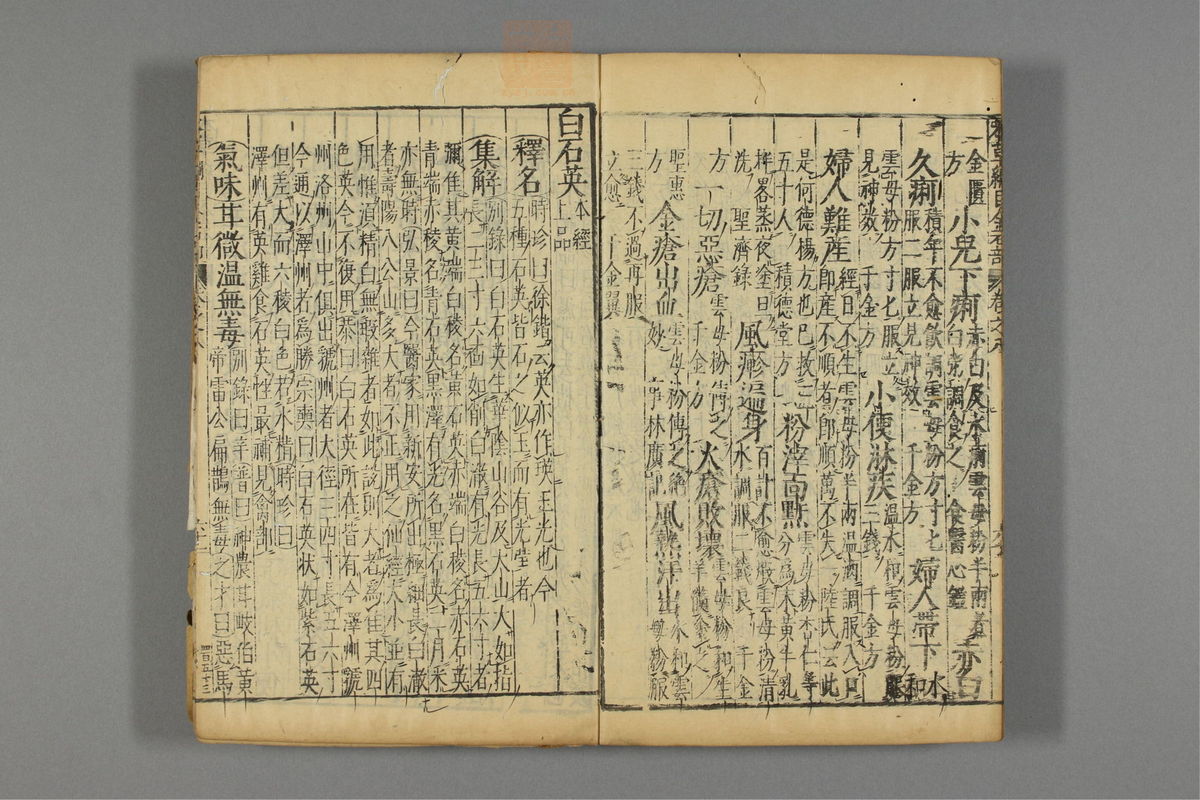 金匱
方
小兒下痢
赤白及水痢雲母粉半兩煮
白粥調食之 食醫心鏡
赤白
久痢
積年不愈飲調雲母粉方寸匕
服二服立見神效 千金方
婦人帶下
水和
雲母粉方寸匕服立
見神效 千金方
小便淋疾
溫水和雲母粉
三錢 千金方
婦人難産
經日不生雲母粉半兩温酒調服入口
即産不順者即順萬不失一陸氏云此
是何德揚方也已救三
五十人 積德堂方
粉滓面䵟
雲母粉杏仁等
分爲末黃牛乳
拌畧蒸夜塗旦
洗 聖濟錄
風疹遍身
百計不愈煅雲母粉清
水調服二錢良 千金
方
一切惡瘡
雲母粉傅之
千金方
火瘡敗壞
雲母粉和生
羊髓塗之
聖惠
方
金瘡出血
雲母粉傅之絶
妙 事林廣記
風熱汗出
水和雲
母粉服
三錢不過再服
立愈 千金翼
白石英本經上品
釋名
時珍曰徐鍇云英亦作瑛玉光也今
五種石英皆石之似玉而有光瑩者
集解
別錄曰白石英生華陰山谷及大山大如指
長二三寸六面如削白澈有光長五六寸者
彌佳其黃端白稜名黃石英赤端白稜名赤石英
青端赤稜名青石英黑澤有光名黑石英二月采
亦無時弘景曰今醫家用新安所出極細長白澈
者壽陽八公山多大者不正用之仙經大小並有
用惟須精白無瑕雜者如此説則大者爲佳其四
色英今不復用恭曰白石英所在皆有今澤州虢
州洛州山中俱出虢州者大徑三四寸長五六寸
今通以澤州者爲勝宗奭曰白石英狀如紫石英
但差大而六稜白色若水精時珍曰
澤州有英雞食石英性最補見禽部
氣味甘微温無毒
別錄曰辛普曰神農甘岐伯黃
帝雷公扁鵲無毒之才曰惡馬